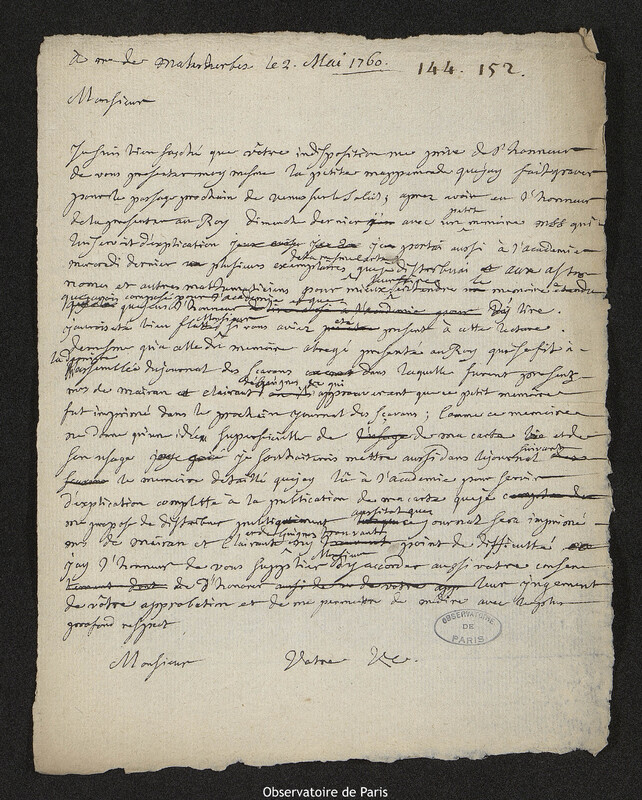 A mr de Malesherbes le 2. Mai 1760. 144. 152.
Monsieur
Je suis bien faché que vôtre indisposition me prive de l'honneur
de vous presenter moy mesme la petite mappemonde que j'ay fait graver
pour le passage prochain de Venus sur le Soleil; apres avoir eu l'honneur
de la presenter au Roy dimanche dernier avec un petit memoire mss qui
luy servoit d'explication j'en portai aussi à l'academie
mercredi dernier plusieurs exemplaires, que je distribuai aux astro
nomes et autres mathematiciens pour mieux entendre le memoire etendu
que j'avois composé pour l'academie et que
j'eus l'honneur d'y lire.
j'aurois été bien flatté si vous aviez été present à cette lecture
Monsieur
de mesme qu'à celle du memoire abregé presenté au Roy qui se fit à
la derniere
assemblée du journal des scavans dans laquelle furent presents
mrs de mairan clairaut de Guignes &c qui approuverent que ce petit memoire
fut imprimé dans le prochain journal des scavans; comme ce memoire
ne donne qu'une idée superficielle de ma carte et de
son usage je souhaiterois mettre aussi dans le journal suivant
le memoire detaillé que j'ay lû à l'academie pour servir
d'explication complette à la publication de ma carte que je
me propose de distribuer aussitot que ce journal sera imprimé
mrs de mairan et Clairaut et de Guignes n'y trouvant point de difficulté
j'ay l'honneur de vous supplier Monsieur d'y accorder aussi votre consen
d'honorer leur jugement
de vôtre approbation et de me permettre de me dire avec le plus
profond respect
Monsieur Votre &c.
OBSERVATOIRE
DE
PARIS
Observatoire de Paris